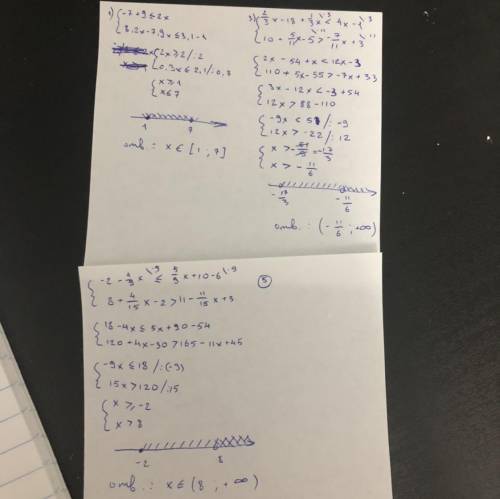 1) { -7 + 9 ≤ 2x
8,2x - 7,9x ≤ 3,1 - 1
{ 2x ≥ 2 /:2
0,3x ≤ 2,1 /:0,3
{ x ≥ 1
x ≤ 7
1 7
отв.: x ∈ [1 ; 7]
3) { 2/3 x - 18 + 1/3 x < 4x - 1 \3
10 + 5/11 x - 5 > -7/11 x + 3 \11
{ 2x - 54 + x < 12x - 3
110 + 5x - 55 > -7x + 33
{ 3x - 12x < -3 + 54
12x > 88 - 110
{ -9x < 51 /: -9
12x > -22 /: 12
{ x > - 51/9 = - 17/3
x > - 11/6
- 17/3 - 11/6
отв.: (- 11/6 ; +∞)
5
{ -2 - 4/9 x \9 ≤ 5/9 x + 10 - 6 \9
8 + 4/15 x - 2 > 11 - 11/15 x + 3
{ 18 - 4x ≤ 5x + 90 - 54
120 + 4x - 30 > 165 - 11x + 45
{ -9x ≤ 18 /:(-9)
15x > 120 /:15
{ x ≥ -2
x > 8
-2 8
отв.: x ∈ (8 ; +∞)